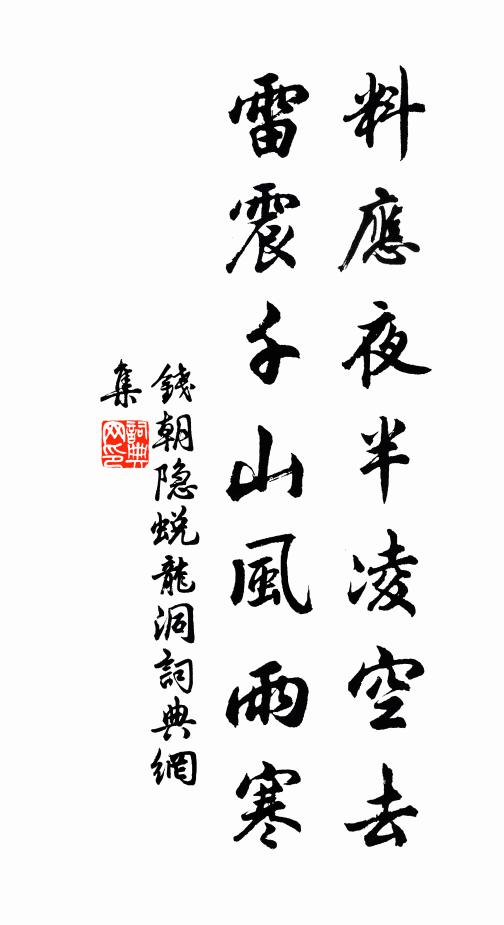 料應夜半凌空去
雷震千山風雨寒
錢朝隐蜕龍洞詞典網
集
詞典網印